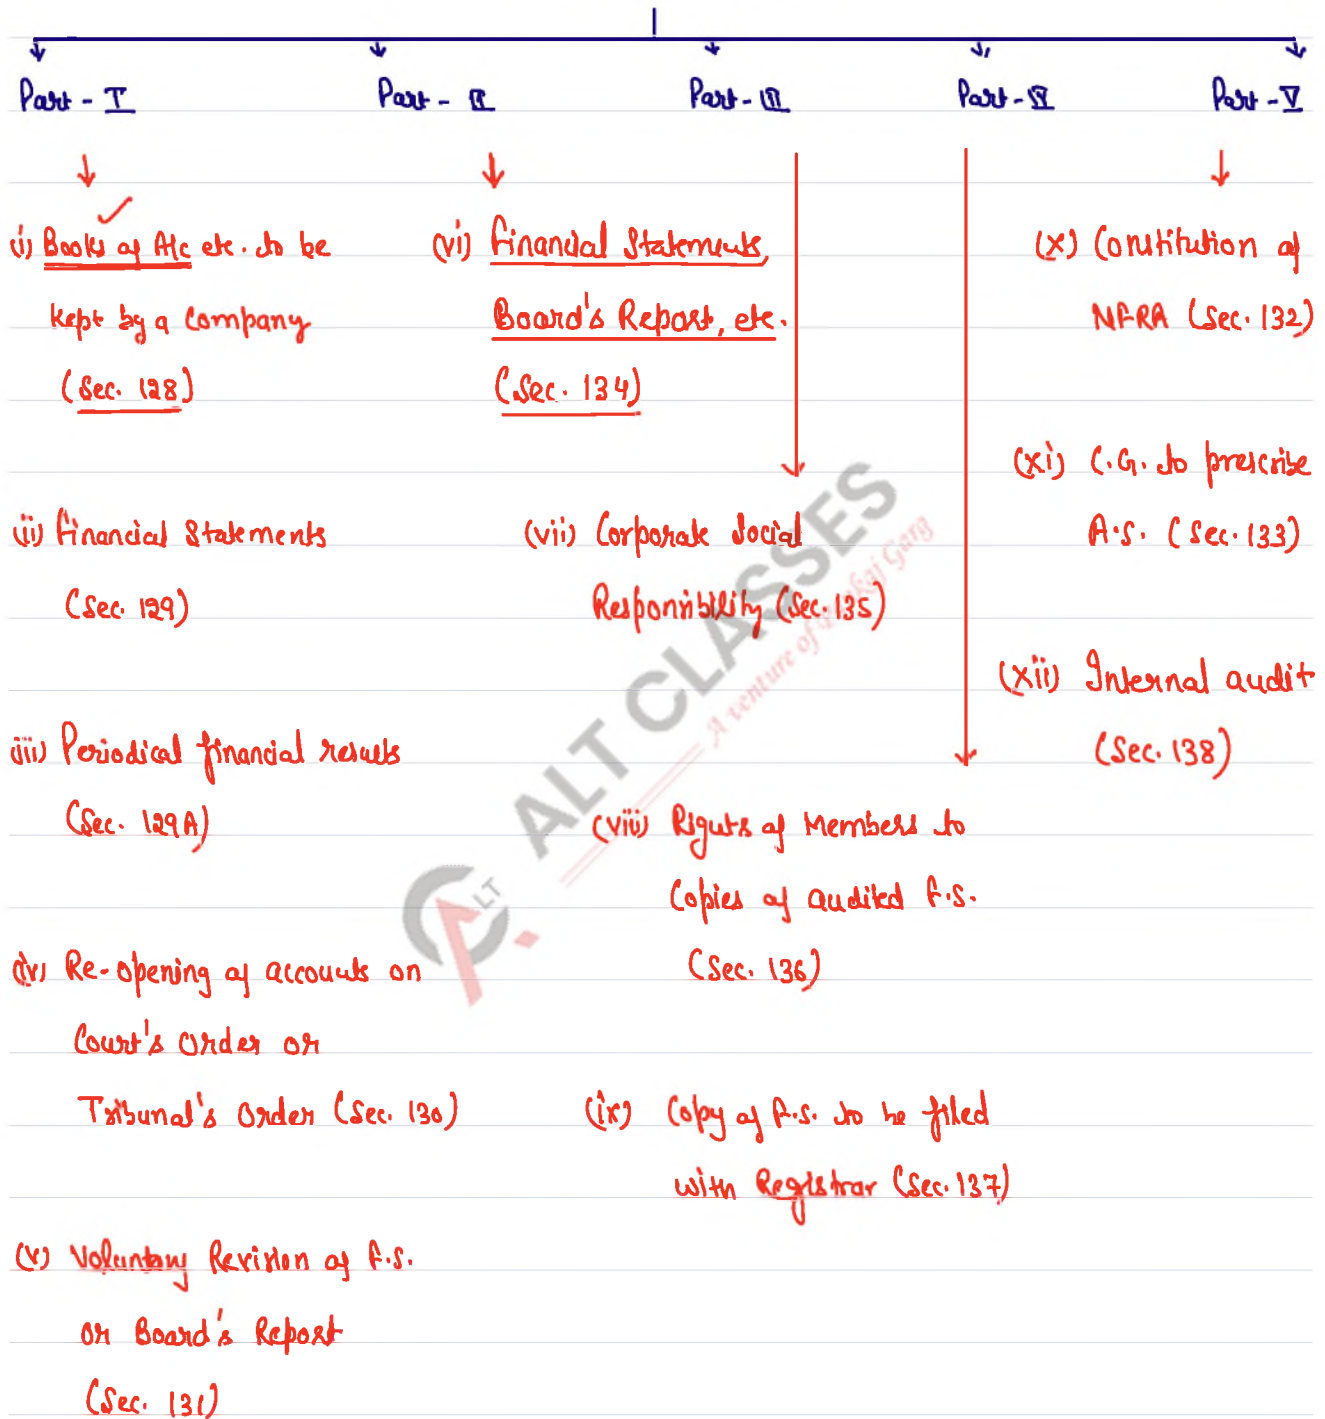 Part - I
Part - II
Part - III
Part - IV
Part - V
(i) Books of A/c etc. to be
kept by a Company
(Sec. 128)
(ii) Financial Statements
(Sec. 129)
(iii) Periodical financial results
(Sec. 129A)
(iv) Re-opening of accounts on
Court's Order or
Tribunal's Order (Sec. 130)
(v) Voluntary Revision of F.S.
or Board's Report
(Sec. 131)
(vi) Financial Statements,
Board's Report, etc.
(Sec. 134)
(vii) Corporate Social
Responsibility (Sec. 135)
(viii) Rights of Members to
Copies of audited F.S.
(Sec. 136)
(ix) Copy of F.S. to be filed
with Registrar (Sec. 137)
(x) Constitution of
NFRA (Sec. 132)
(xi) C.G. to prescribe
A.S. (Sec. 133)
(xii) Internal audit
(Sec. 138)
ALT CLASSES
A venture of Pankaj Garg
ALT